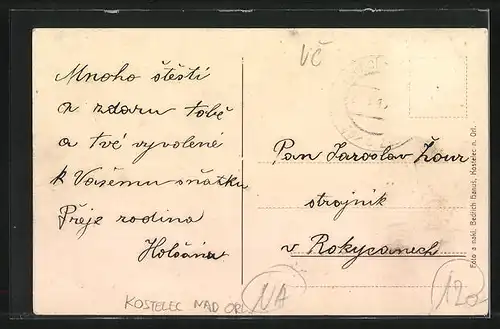 VČ
Mnoho štěstí
a zdaru tobě
a tvé vyvolené
k Vašemu sňatku
Přeje rodina
Pan Jaroslav Žour
strojník
v Rokycanech
Foto a nakl. Bedřich Hanuš, Kostelec n. Orl.
KOSTELEC NAD ORL
NA
120